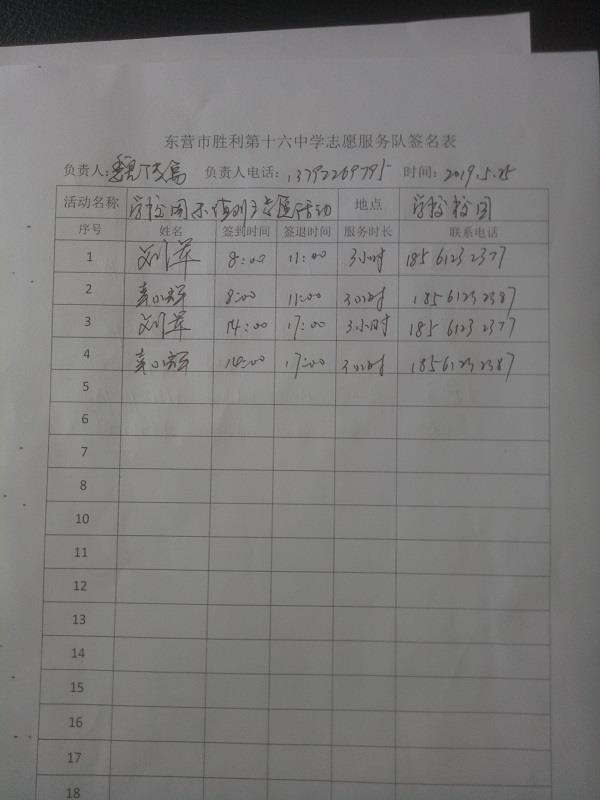 东营市胜利第十六中学志愿服务队签名表
负责人: 负责人电话: 13792269795 时间: 2019.5.25
活动名称 学校图书 活动 地点 学校校园
序号 姓名 签到时间 签退时间 服务时长 联系电话
1 刘军 8:00 11:00 3小时 18561232377
2 8:00 11:00 3小时 18561232387
3 刘军 14:00 17:00 3小时 18561232377
4 14:00 17:00 3小时 18561232387
5
6
7
8
10
11
12
13
14
15
16
17
18